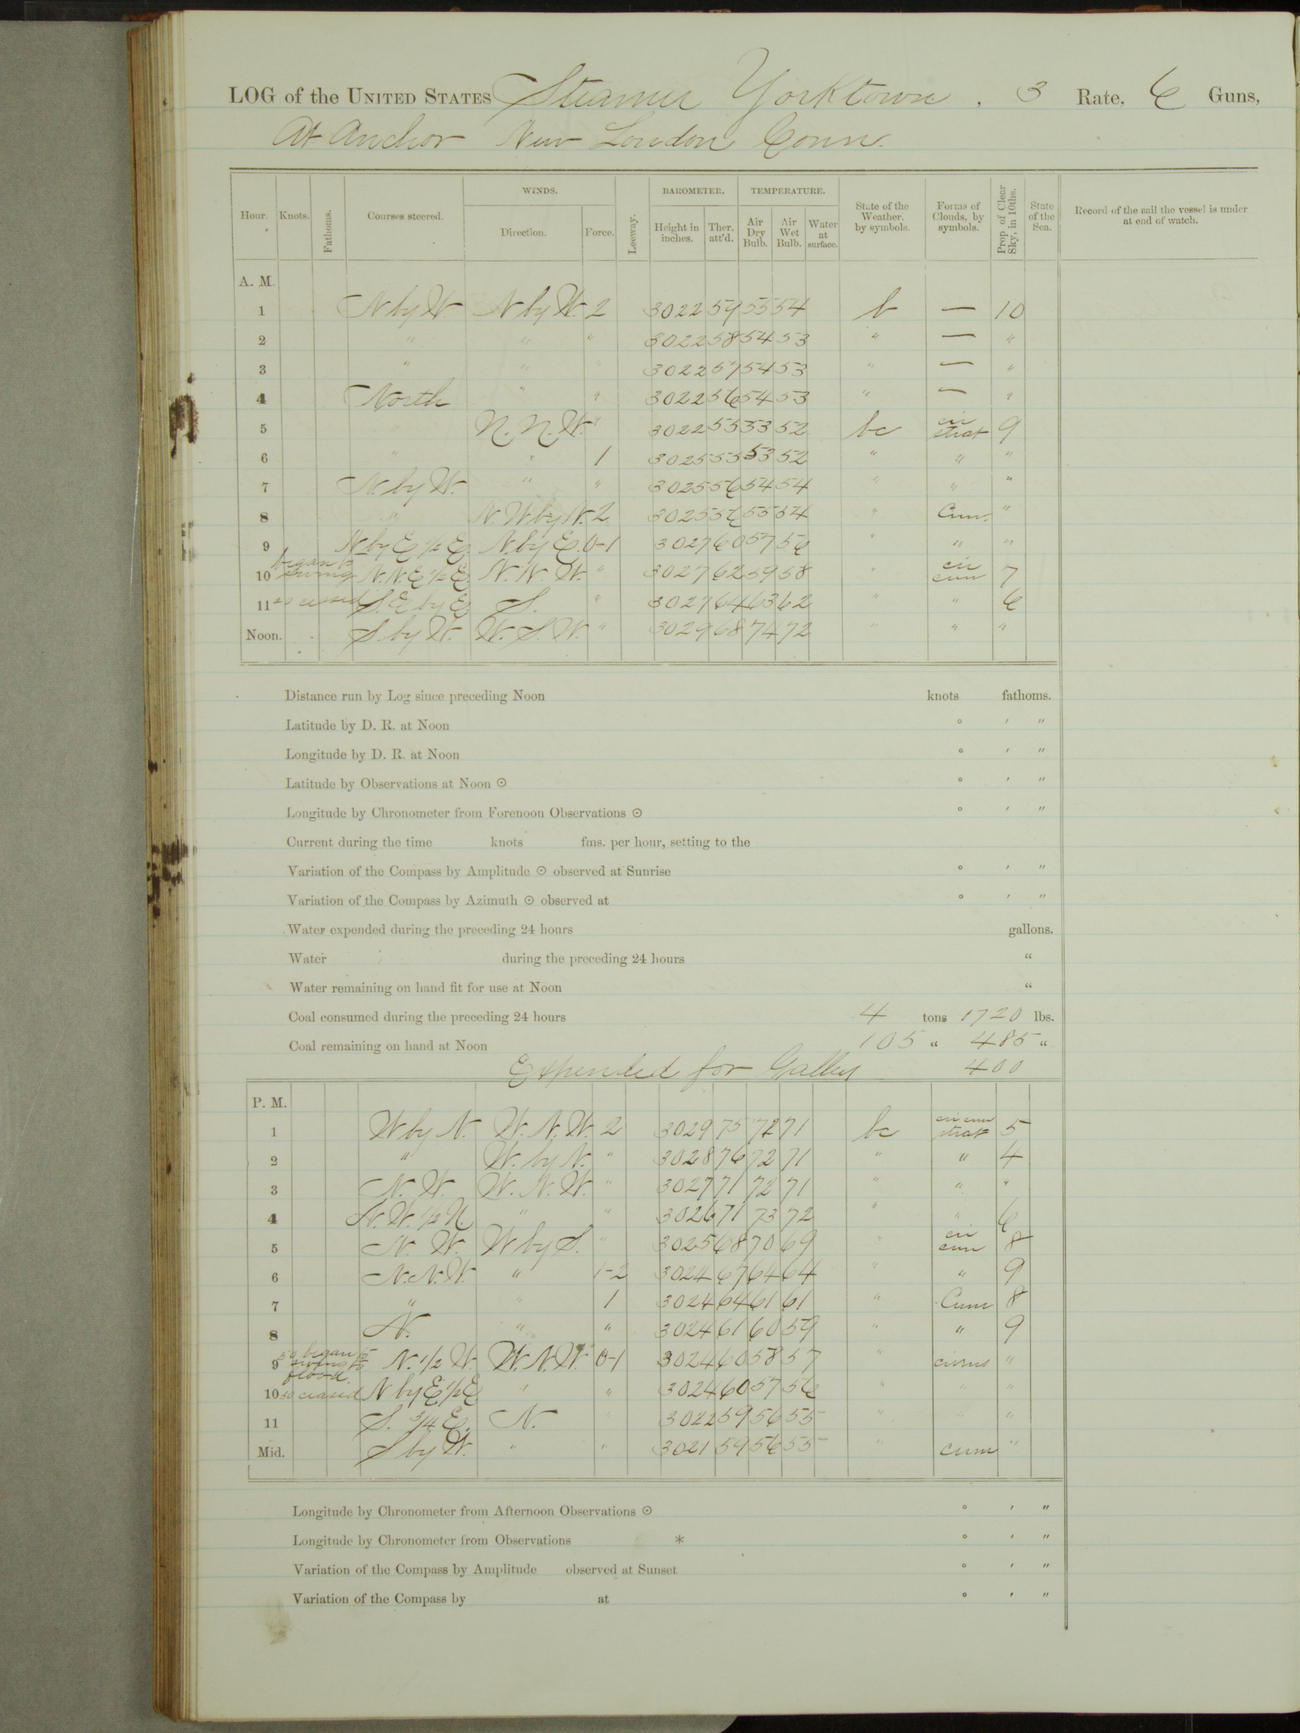 LOG of the UNITED STATES Steamer Yorktown, 3 Rate, 6 Guns,
At Anchor New London Conn.
Hour. Knots. Fathoms. Courses steered. WINDS. Direction. Force. Leeway. BAROMETER. Height in inches. Ther. att'd. TEMPERATURE. Air Dry Bulb. Air Wet Bulb. Water at surface. State of the Weather, by symbols. Forms of Clouds, by symbols. Prop of Clear Sky, in 10ths. State of the Sea. Record of the sail the vessel is under at end of watch.
A. M.
1 N by W N by W 2 3022 59 55 54 b — 10
2 " " " 3022 58 54 53 " — "
3 " " 3022 57 54 53 " — "
4 North " " 3022 56 54 53 " — "
5 N. N. W. " 3022 55 53 52 bc cir strat 9
6 " " 1 3025 55 53 52 " " "
7 N by W. " " 3025 56 54 54 " " "
8 " N. W by N. 2 3025 56 55 54 " Cum. "
9 N by E 1/2 E N by E. 0-1 3027 60 57 56 " " "
10 began to swing N. N E 1/2 E N. N. W. " 3027 62 59 58 " cir cum 7
11 ceased S. E by E S. " 3027 64 63 62 " " 6
Noon. S by W. W. S. W. " 3029 68 74 72 " " "
Distance run by Log since preceding Noon knots fathoms.
Latitude by D. R. at Noon ° ' "
Longitude by D. R. at Noon ° ' "
Latitude by Observations at Noon ☉ ° ' "
Longitude by Chronometer from Forenoon Observations ☉ ° ' "
Current during the time knots fms. per hour, setting to the
Variation of the Compass by Amplitude ☉ observed at Sunrise ° ' "
Variation of the Compass by Azimuth ☉ observed at ° ' "
Water expended during the preceding 24 hours gallons.
Water during the preceding 24 hours "
Water remaining on hand fit for use at Noon "
Coal consumed during the preceding 24 hours 4 tons 1720 lbs.
Coal remaining on hand at Noon 105 " 485 "
Expended for Galley 400
P. M.
1 W by N. W. N. W. 2 3029 75 72 71 bc cir cum strat 5
2 " W. by N. " 3028 76 72 71 " " 4
3 N. W. W. N. W. " 3027 71 72 71 " " "
4 N. W. 1/2 N " " 3026 71 73 72 " " 6
5 N. W. W by S. " 3025 68 70 69 " cir cum 8
6 N. N. W. " 1-2 3024 67 64 64 " " 9
7 " " 1 3024 64 61 61 " Cum 8
8 N. " " 3024 61 60 59 " " 9
9 began swing to flood. N. 1/2 W W. N. W. 0-1 3024 60 58 57 " cirrus "
10 ceased N by E 1/2 E " " 3024 60 57 56 " " "
11 S. 3/4 E. N. " 3022 59 56 55 " " "
Mid. S by W. " " 3021 59 56 55 " cum "
Longitude by Chronometer from Afternoon Observations ☉ ° ' "
Longitude by Chronometer from Observations * ° ' "
Variation of the Compass by Amplitude observed at Sunset ° ' "
Variation of the Compass by at ° ' "